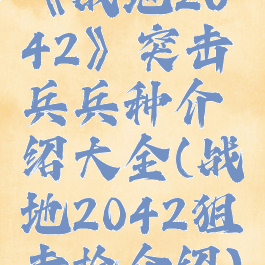 《战地20
42》突击
兵兵种介
绍大全(战
地2042狙
击枪介绍)